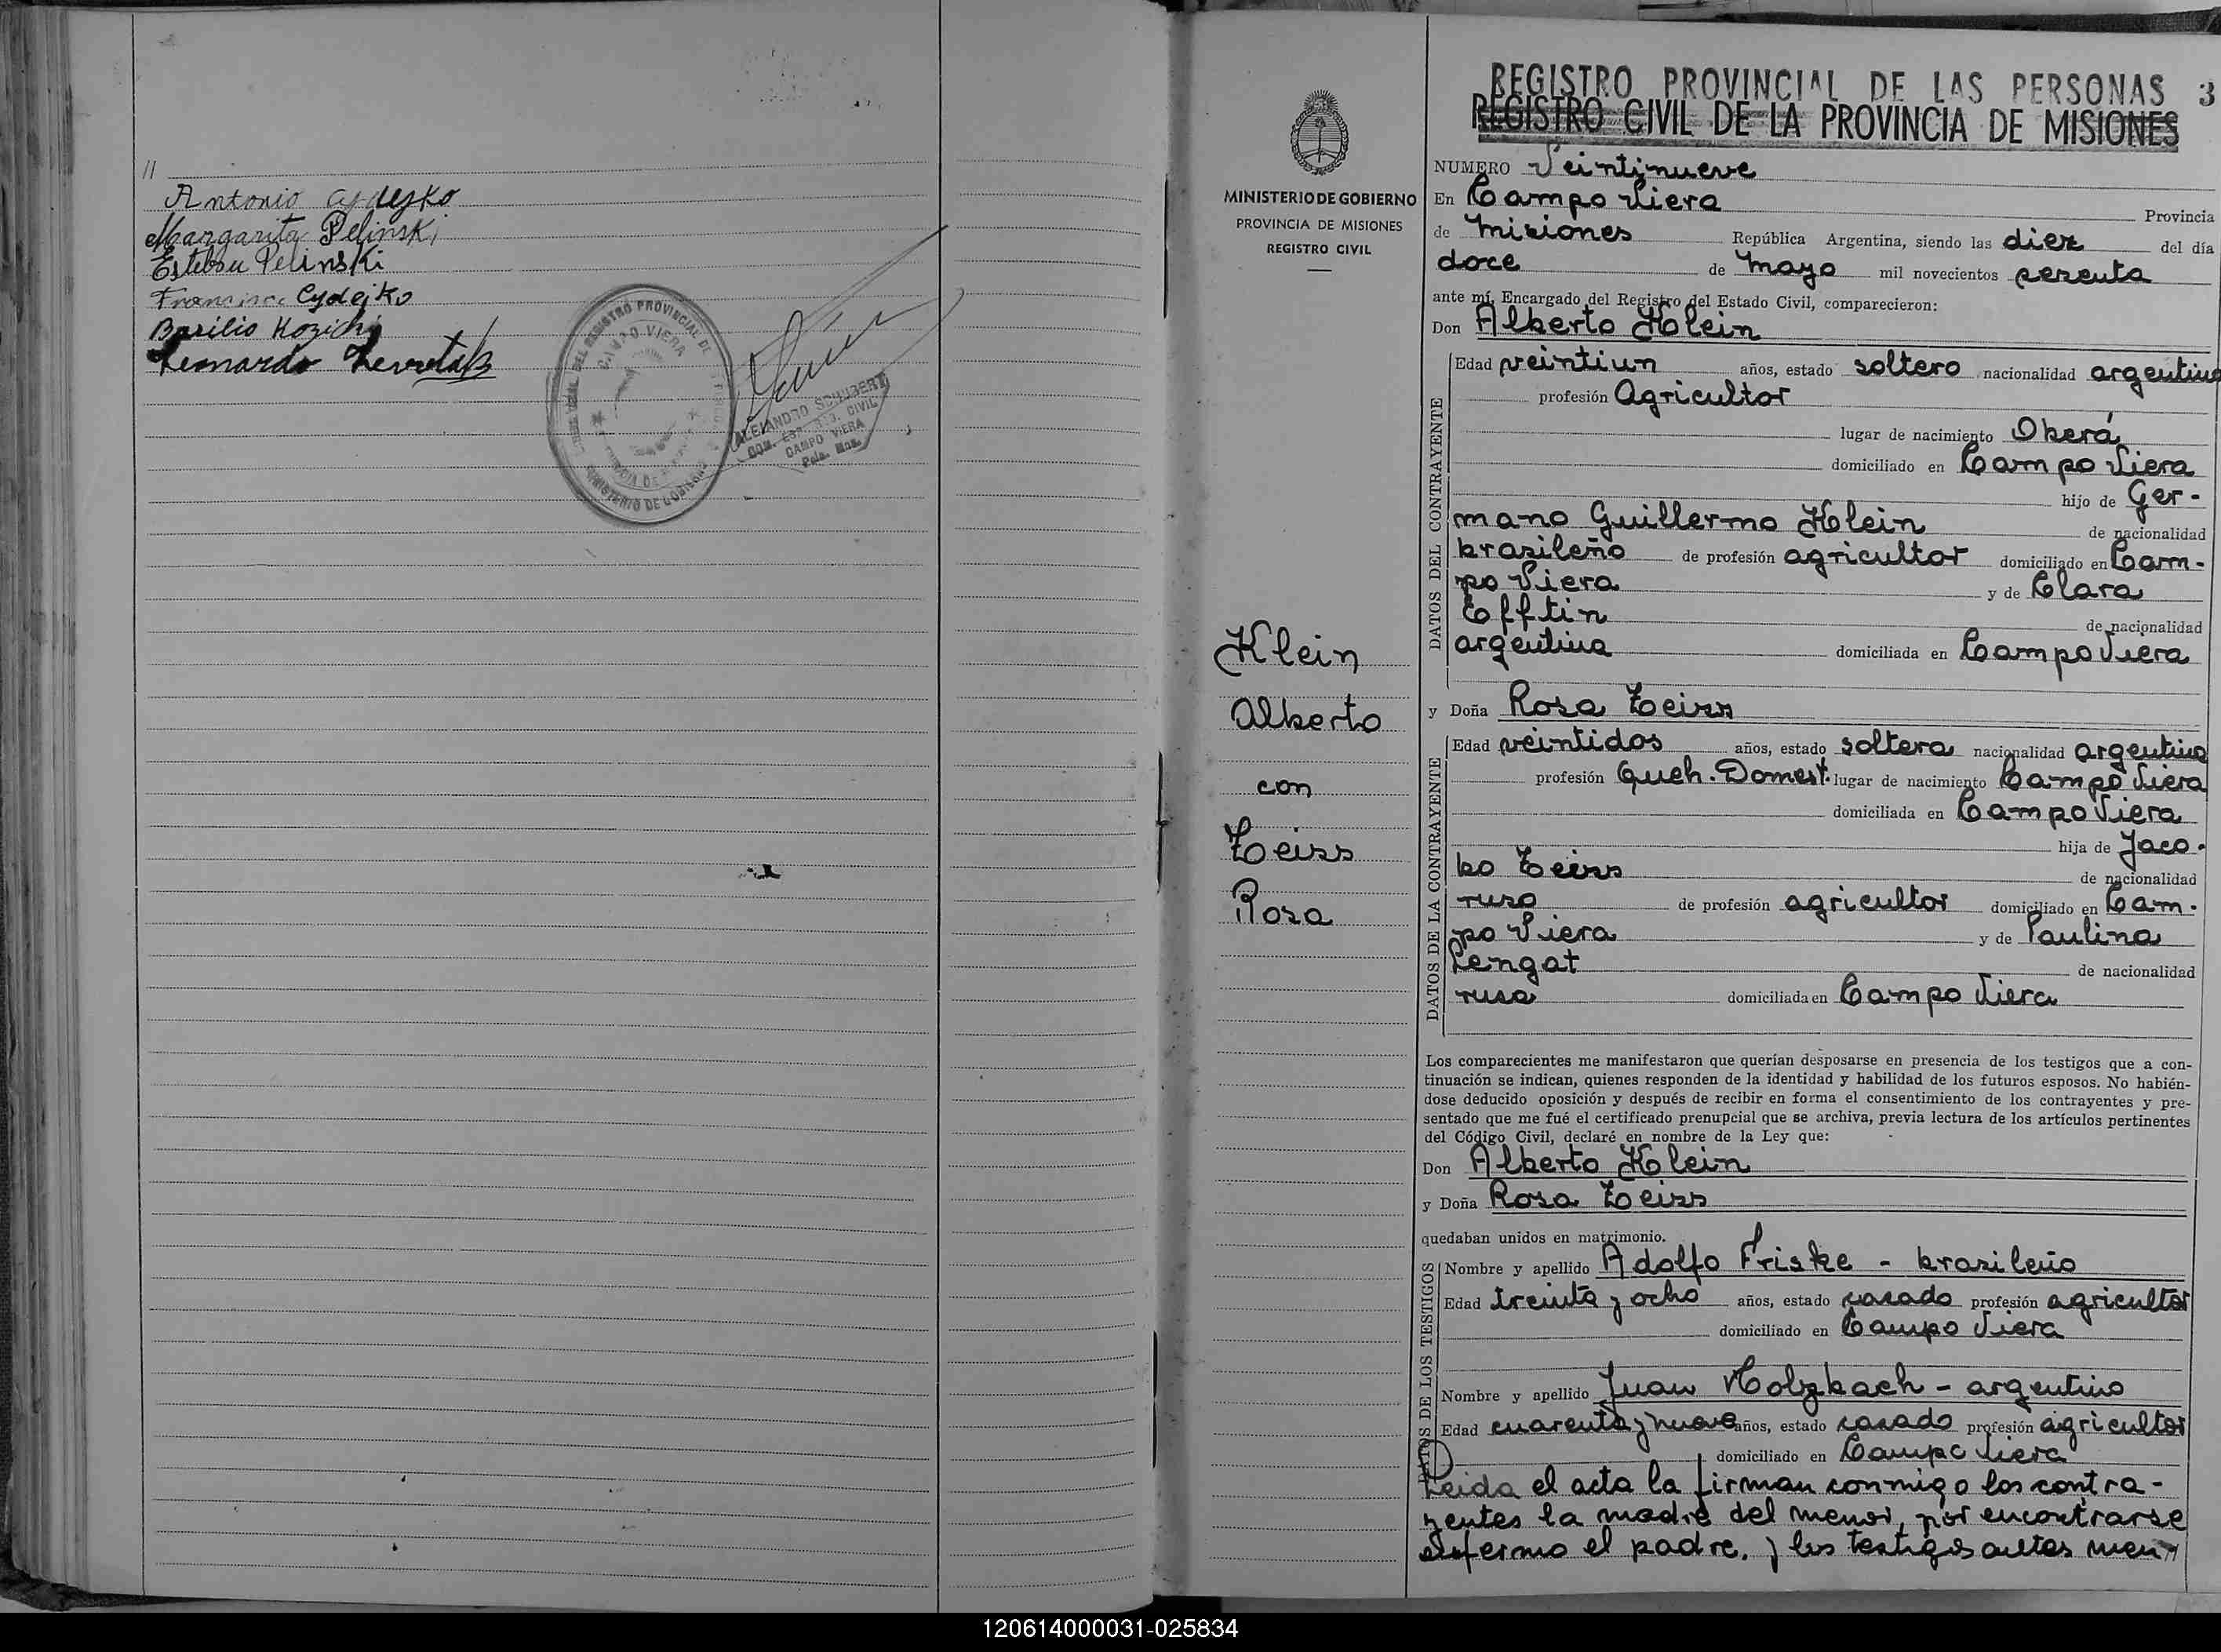 //
Antonio Cydejko
Margarita Pelinski
Esteban Pelinski
Francisco Cydejko
Basilio Kozicki
Leonardo
REGISTRO PROVINCIAL DE
CAMPO VIERA
MINISTERIO DE GOBIERNO
ALEJANDRO SCHUBERT
CAMPO VIERA
Pcia. Mnes.
MINISTERIO DE GOBIERNO
PROVINCIA DE MISIONES
REGISTRO CIVIL
Klein
Alberto
con
Zeiss
Rosa
REGISTRO PROVINCIAL DE LAS PERSONAS 3
REGISTRO CIVIL DE LA PROVINCIA DE MISIONES
NUMERO Veintinueve
En Campo Viera Provincia
de Misiones República Argentina, siendo las diez del día
doce de Mayo mil novecientos sesenta
ante mí, Encargado del Registro del Estado Civil, comparecieron:
Don Alberto Klein
DATOS DEL CONTRAYENTE
Edad veintiun años, estado soltero nacionalidad argentino
profesión Agricultor
lugar de nacimiento Oberá
domiciliado en Campo Viera
hijo de Ger-
mano Guillermo Klein de nacionalidad
brasileño de profesión agricultor domiciliado en Cam-
po Viera y de Clara
Efftin de nacionalidad
argentina domiciliada en Campo Viera
y Doña Rosa Zeiss
DATOS DE LA CONTRAYENTE
Edad veintidos años, estado soltera nacionalidad argentina
profesión Queh. Domest. lugar de nacimiento Campo Viera
domiciliada en Campo Viera
hija de Jaco-
bo Zeiss de nacionalidad
ruso de profesión agricultor domiciliado en Cam-
po Viera y de Paulina
Lengat de nacionalidad
rusa domiciliada en Campo Viera
Los comparecientes me manifestaron que querían desposarse en presencia de los testigos que a con-
tinuación se indican, quienes responden de la identidad y habilidad de los futuros esposos. No habién-
dose deducido oposición y después de recibir en forma el consentimiento de los contrayentes y pre-
sentado que me fué el certificado prenupcial que se archiva, previa lectura de los artículos pertinentes
del Código Civil, declaré en nombre de la Ley que:
Don Alberto Klein
y Doña Rosa Zeiss
quedaban unidos en matrimonio.
DATOS DE LOS TESTIGOS
Nombre y apellido Adolfo Friske - brasileño
Edad treinta y ocho años, estado casado profesión agricultor
domiciliado en Campo Viera
Nombre y apellido Juan Holzbach - argentino
Edad cuarenta y nueve años, estado casado profesión agricultor
domiciliado en Campo Viera
Leida el acta la firman conmigo los contra-
yentes la madre del menor, por encontrarse
enfermo el padre, y los testigos antes men-//
120614000031-025834